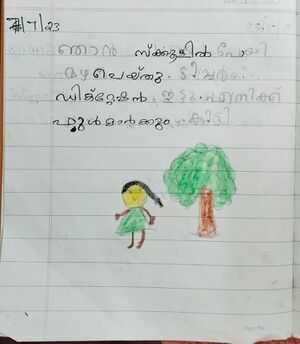 7/7/23
ഞാൻ സ്ക്കൂളിൽ പോയി
മഴ പെയ്തു. ടീച്ചർ
ഡിക്റ്റേഷൻ ഇട്ടു. എനിക്ക്
ഫുൾമാർക്കും കിട്ടി
Page No.